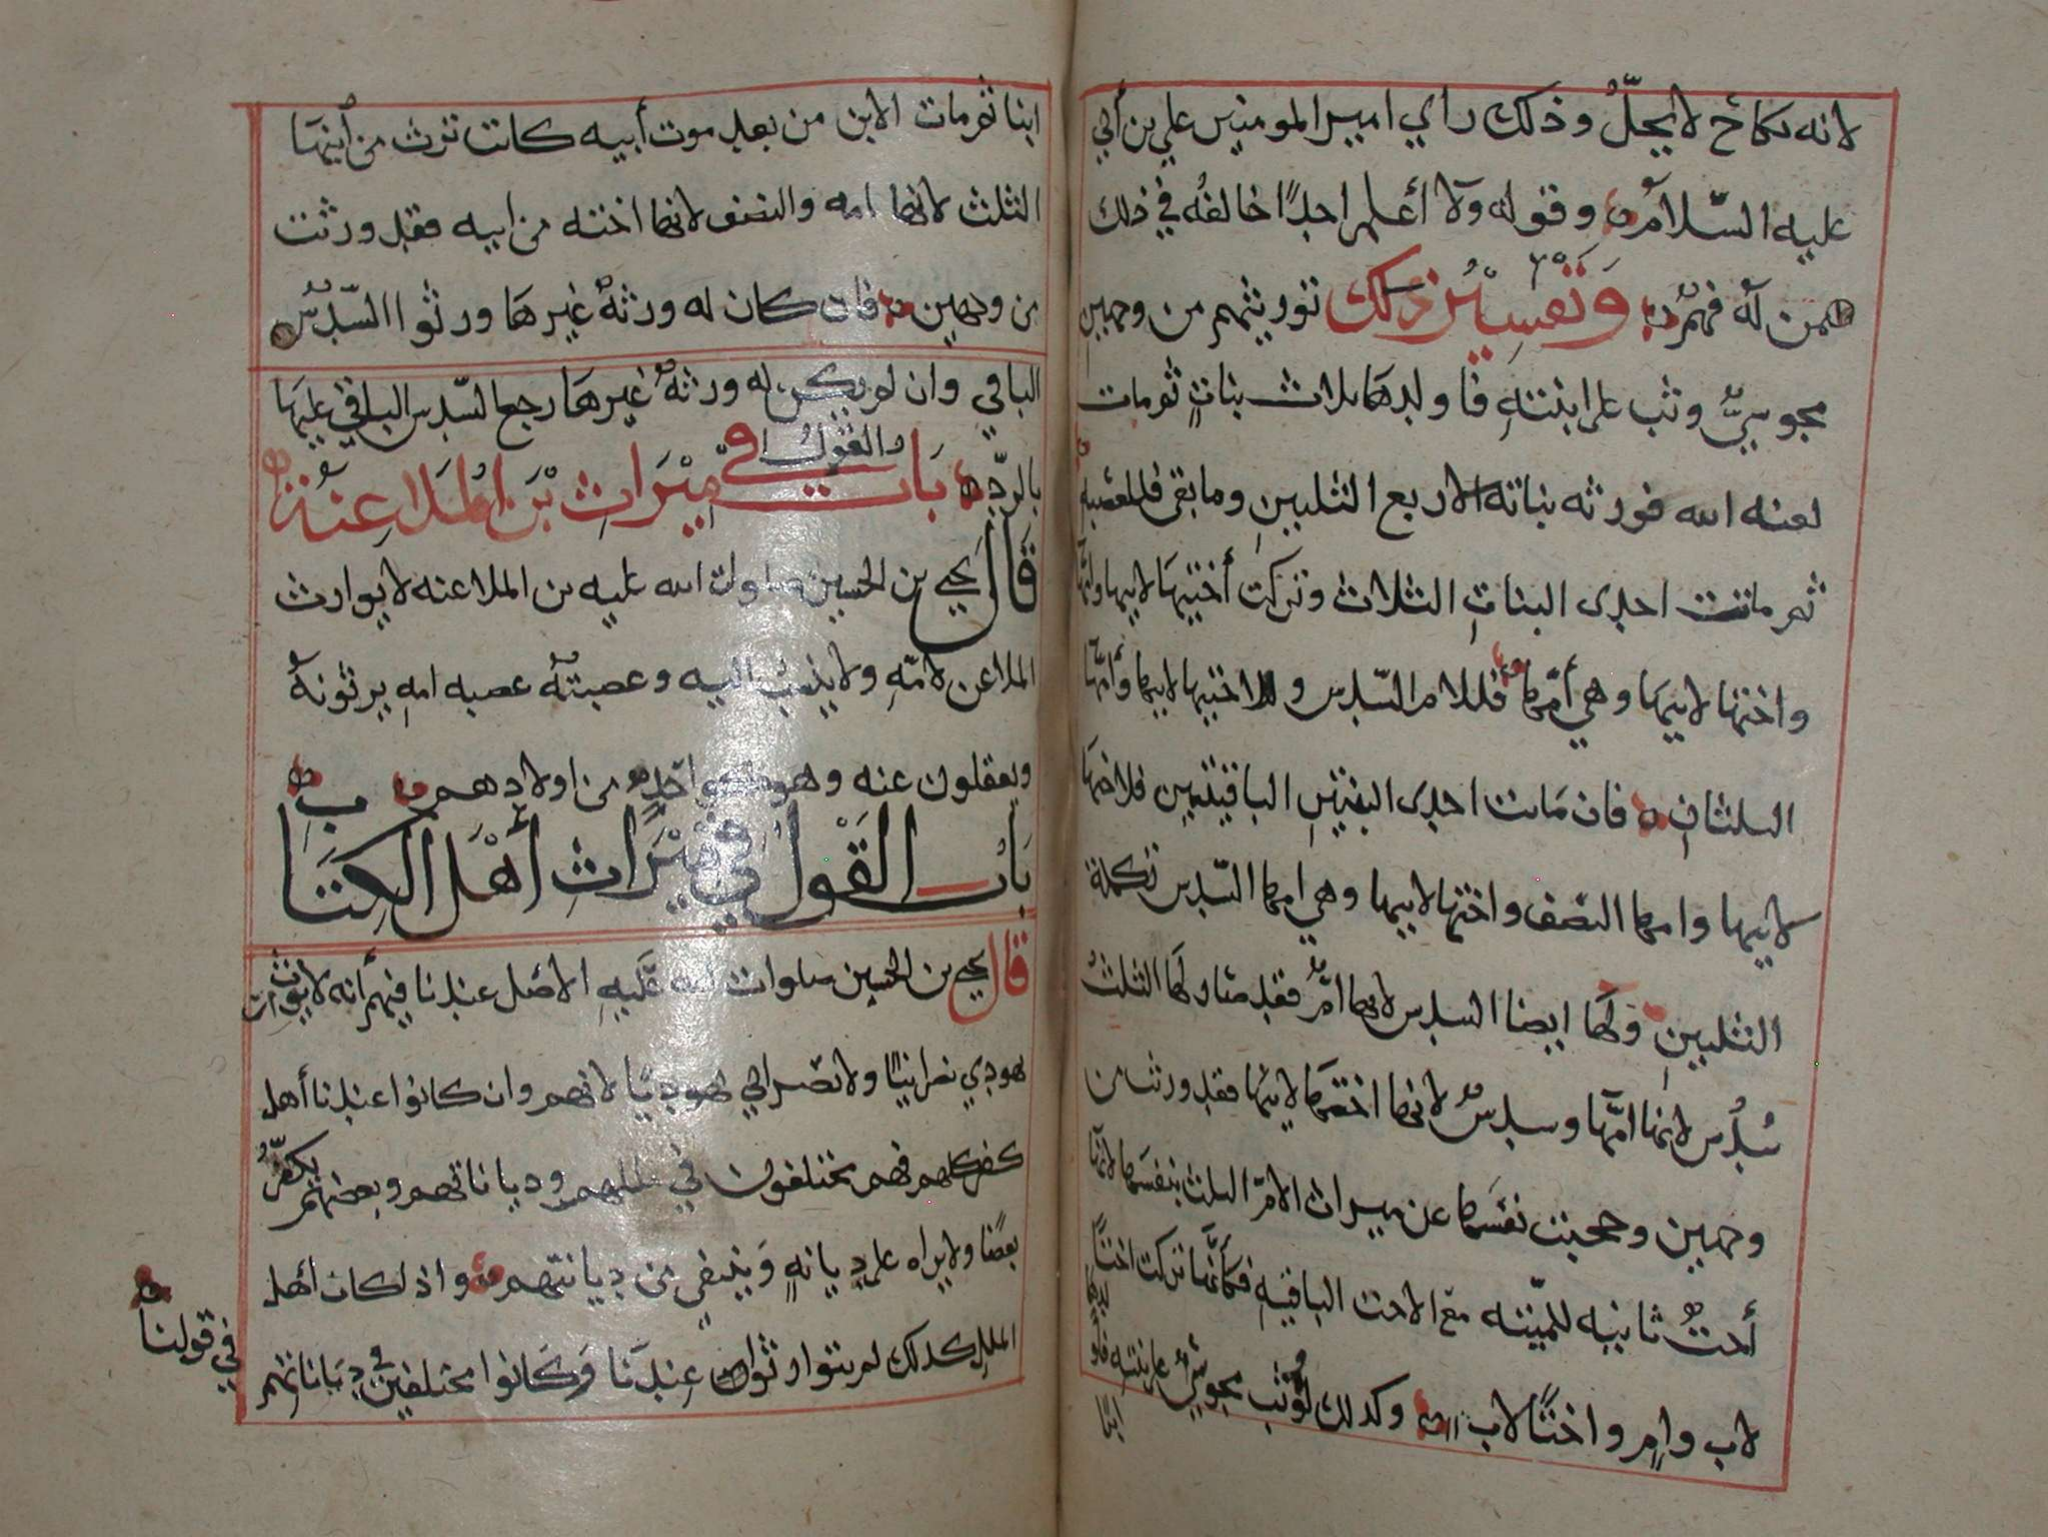 لانه نكاح لا يحلّ وذلك رأي امير المومنين علي بن أبي
عليه السّلام وقوله ولا أعلم احدًا خالفه في ذلك
ممن له فهم وتفسير ذلك توريثهم من وجهين
مجوسيٌّ وثب على ابنتهِ فاولدها ثلاث بناتٍ ثم مات
لعنه الله فورثه بناته الاربع الثلثين وما بقي فللعصبه
ثم ماتت احدى البناتِ الثلاث وتركت أختيها لابيها وامها
واختها لابيها وهي أمّها فللام السّدس وللاختيها لابيها وأمّها
الثلثانِ فان ماتت احدى البنتين الباقيتين فلاختها
لابيها وامها النصف واختها لابيها وهي امها السّدس تكملة
الثلثينِ ولها ايضا السدس لانها امٌّ فقد صار لها الثلث
سُدُس لانها امّها وسدسٌ لانها اختها لابيها فقد ورثت من
وجهين وحجبت نفسها عن ميراث الام الثلث بنفسها لانها
أختٌ ثانيه للميّته مع الاخت الباقيهِ فكأنّها تركت اختًا
لاب وامٍ واختًا لاب وكذلك لو وثب مجوسيٌّ على بنته فاولدها
ابنًا
ابنا ثم مات الابن من بعد موت أبيه كانت ترث من أبنها
الثلث لانها امه والنصف لانها اخته من ابيه فقد ورثت
من وجهين فان كان له ورثةٌ غيرها ورثوا السّدُس
الباقي وان لم يكن له ورثةٌ غيرها رجع السّدس الباقي عليها
بالردّ باب القول في ميراث بن الملاعنة
قال يحيى بن الحسين صلوات الله عليه بن الملاعنه لا يوارث
الملاعن لامّهِ ولا ينسب اليه وعصبتهُ عصبه امهِ يرثونهُ
ويعقلون عنه وهو واحدٌ من اولادهم
باب القول في ميراث أهل الكتاب
قال يحيى بن الحسين صلوات الله عليهِ الاصل عندنا فيهم أنه لا يوارث
يهودي نصرانيًا ولا نصراني يهوديًا لانهم وان كانوا عندنا أهل
كفر كلهم فهم مختلفون في مللهم ودياناتهم وبعضهم يكفّرُ
بعضًا ولا يراه على ديانهٍ وينتفي من ديانتهم واذ لكان أهل
الملل كذلك لم يتوارثوا عندنا وكانوا مختلفين في دياناتهم
في قولنا